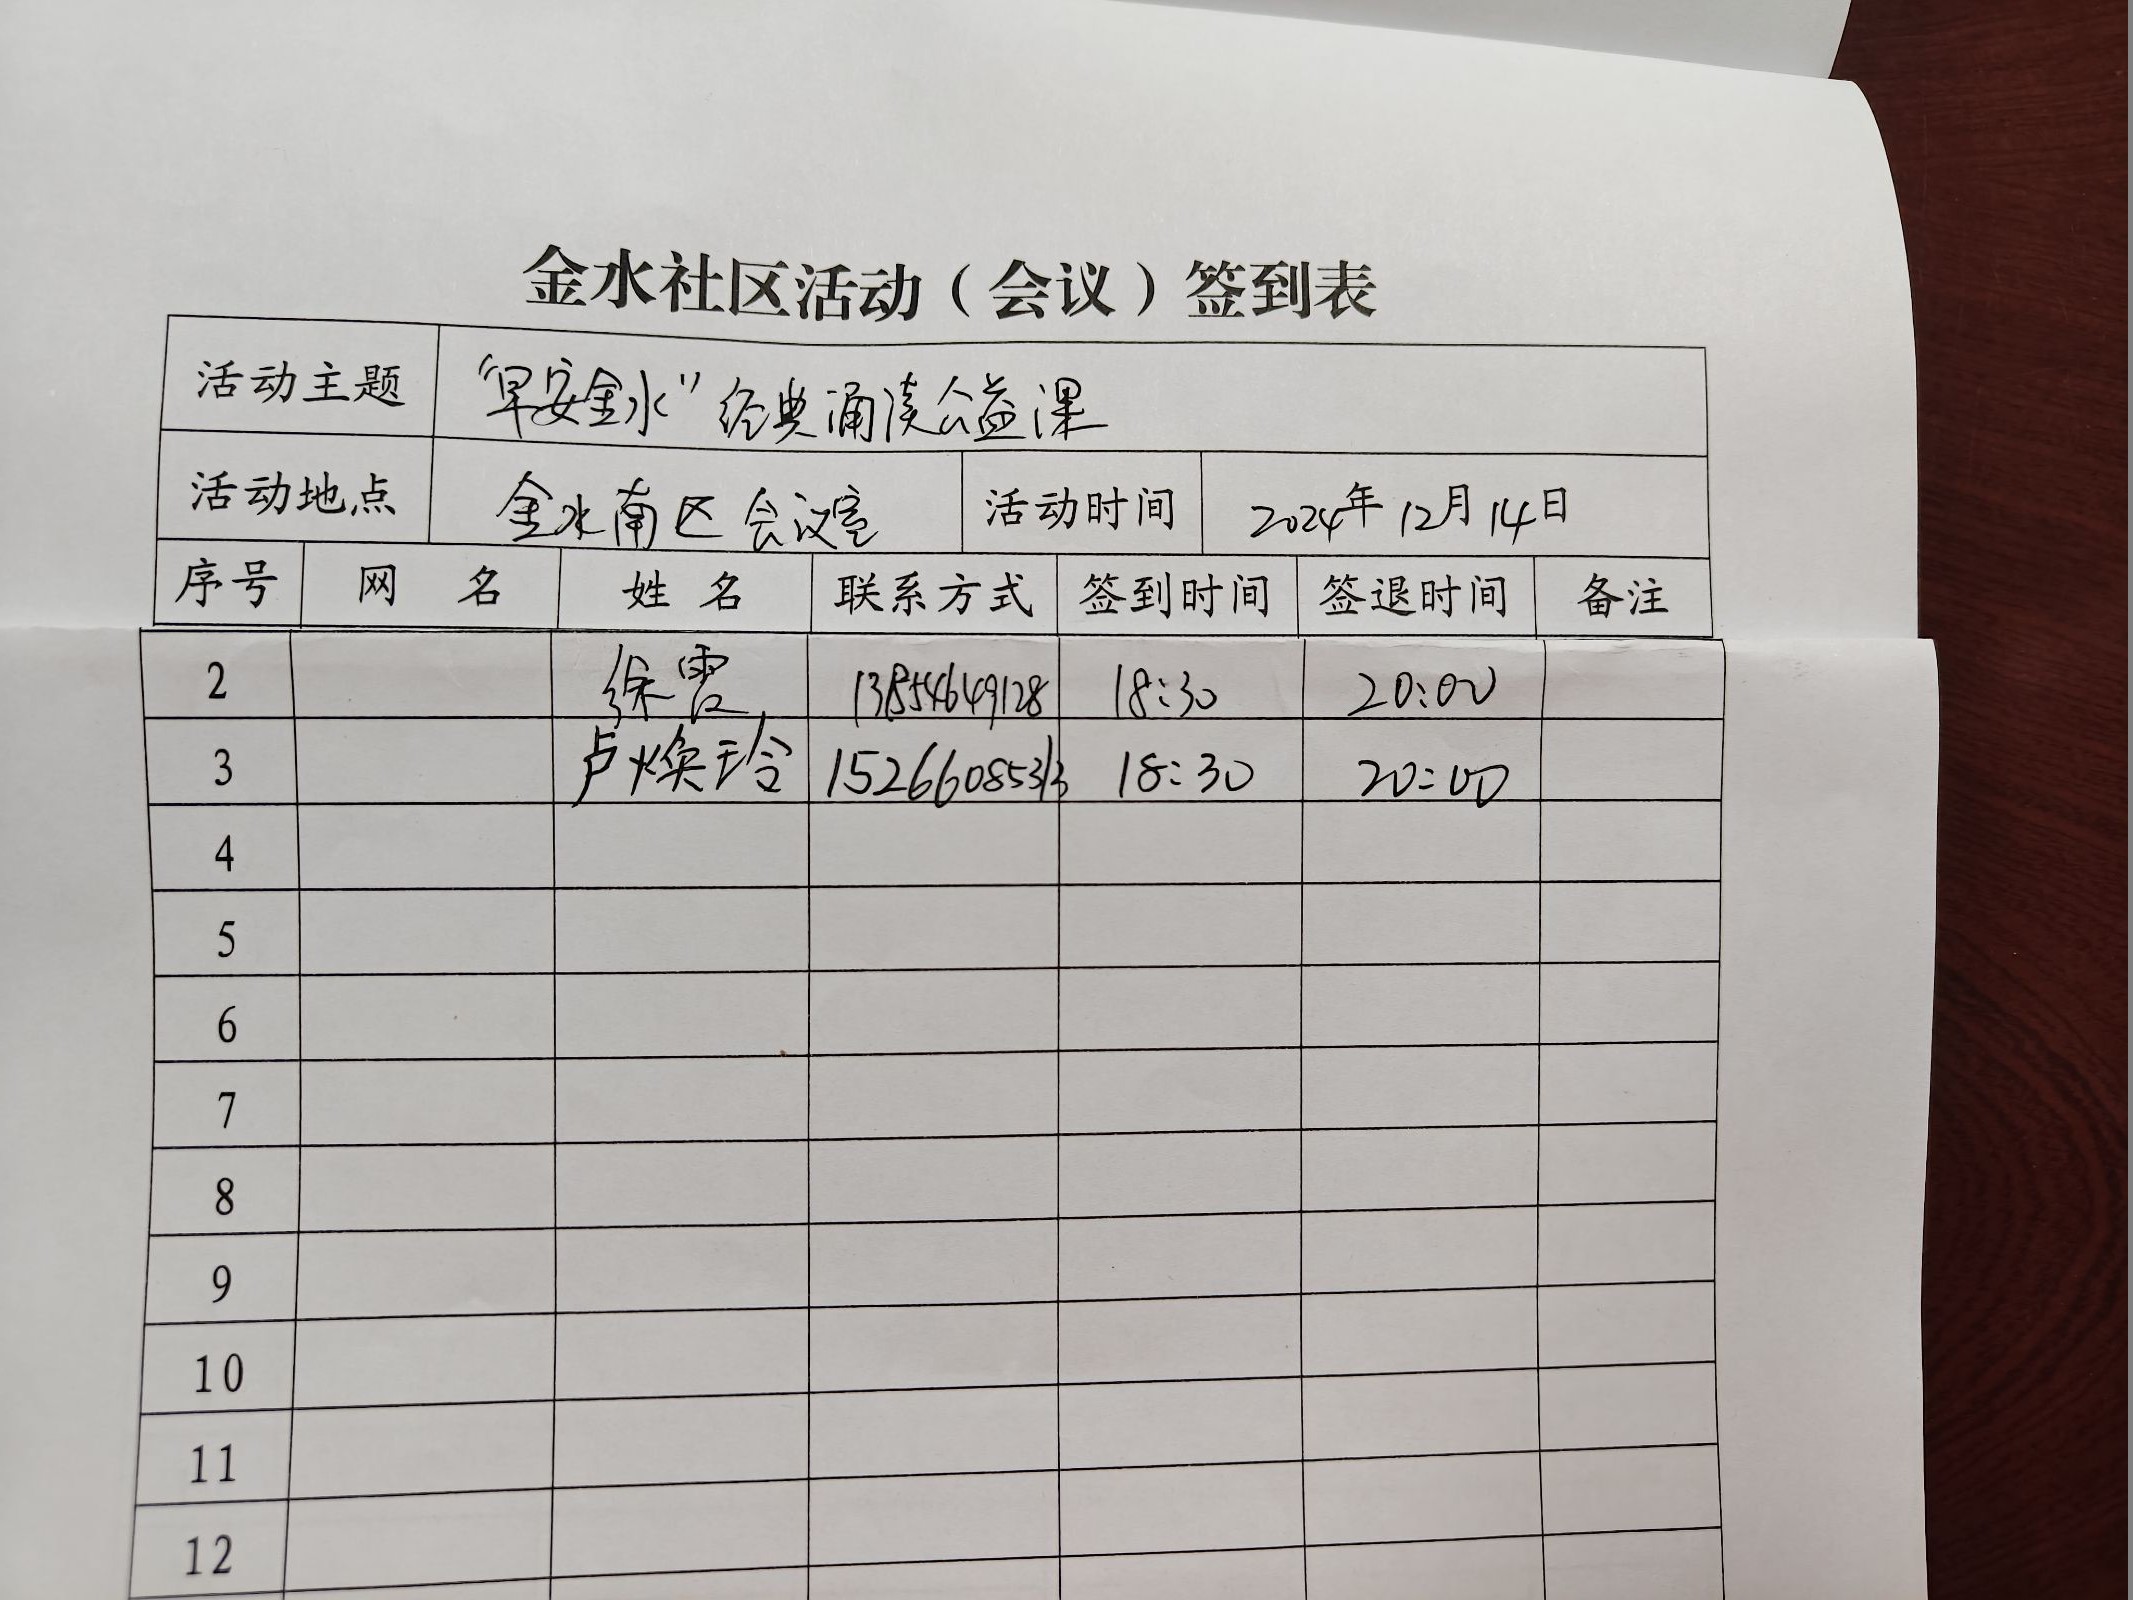 金水社区活动（会议）签到表
活动主题 “早安金水”经典诵读公益课
活动地点 金水南区会议室 活动时间 2024年12月14日
序号 网 名 姓 名 联系方式 签到时间 签退时间 备注
2 徐霞 13854649128 18:30 20:00
3 卢焕玲 15266085313 18:30 20:00
4
5
6
7
8
9
10
11
12